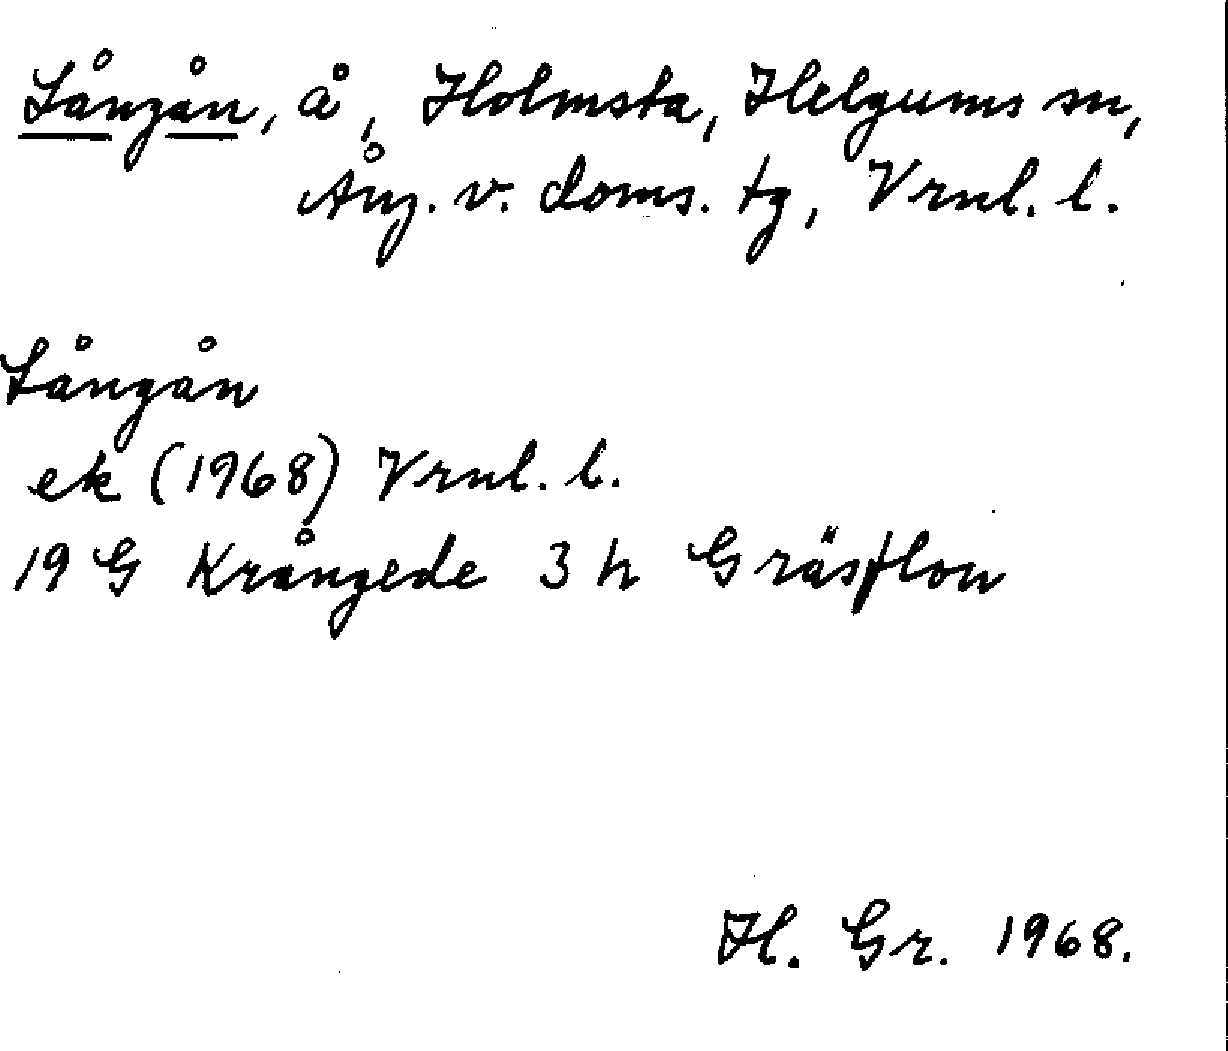 Långån, å, Holmsta, Helgums sn,
Ång. v. doms. tg, Vrnl. l.
Långån
ek (1968) Vrnl. l.
19 G Krångede 3 h Gräsflon
H. Gr. 1968.